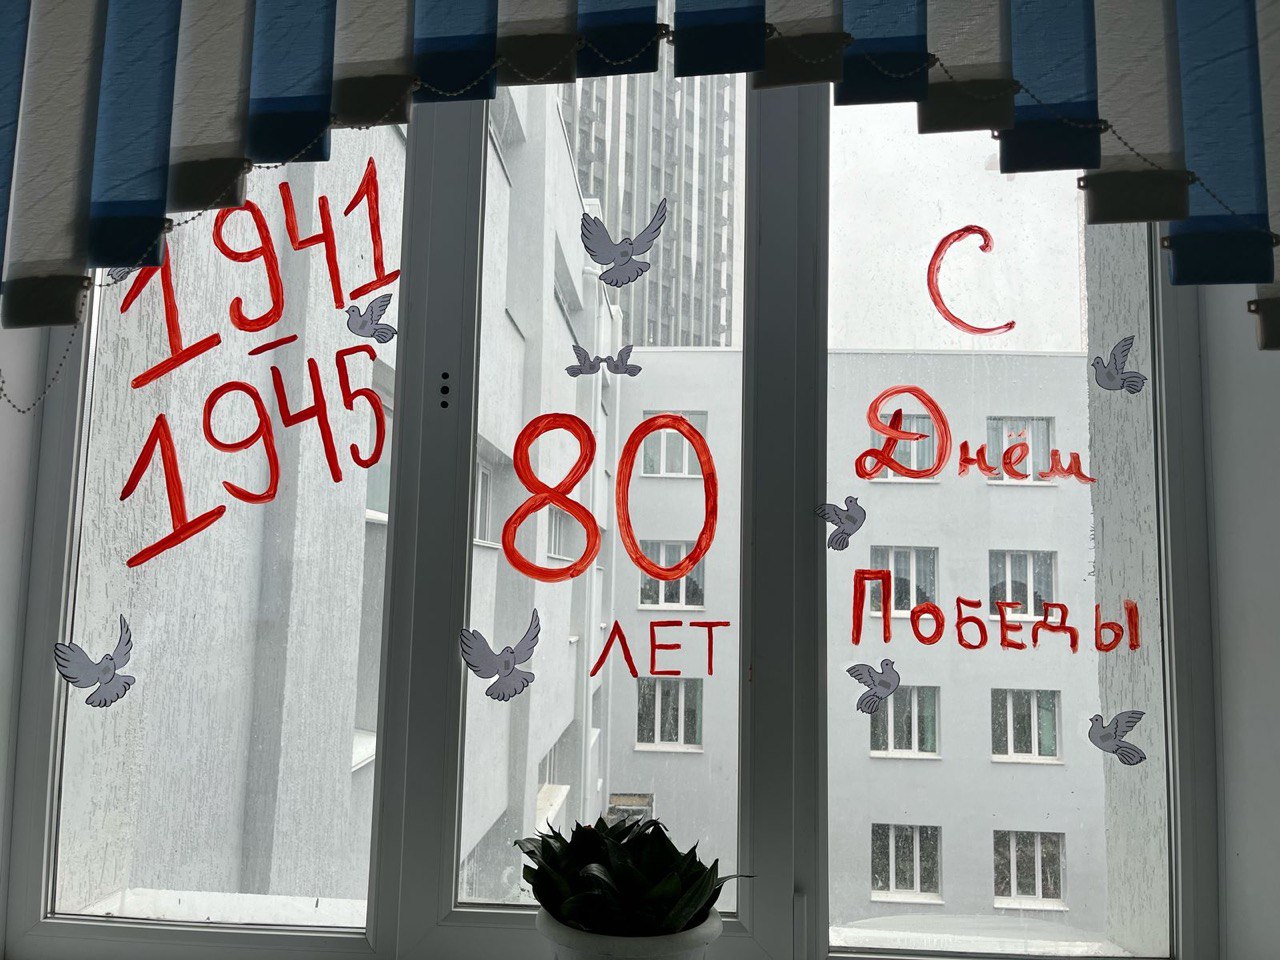 1941
–
1945
80
ЛЕТ
С
Днём
ПОБЕДЫ